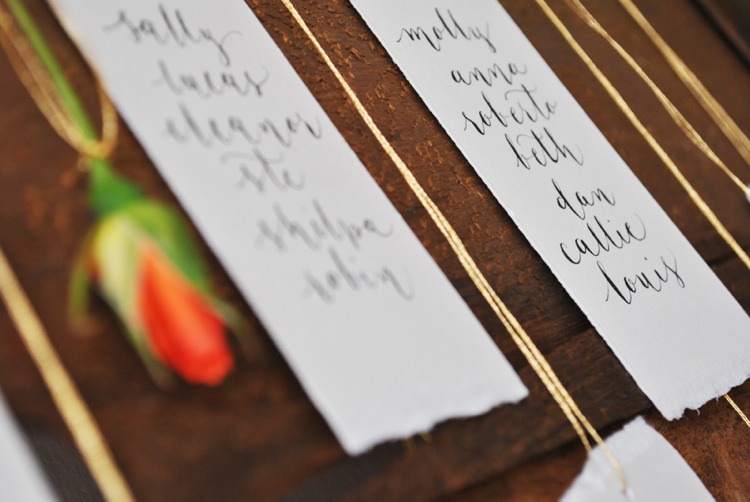 sally
lucas
eleanor
ste
shilpa
robin
molly
anna
roberto
beth
dan
callie
louis